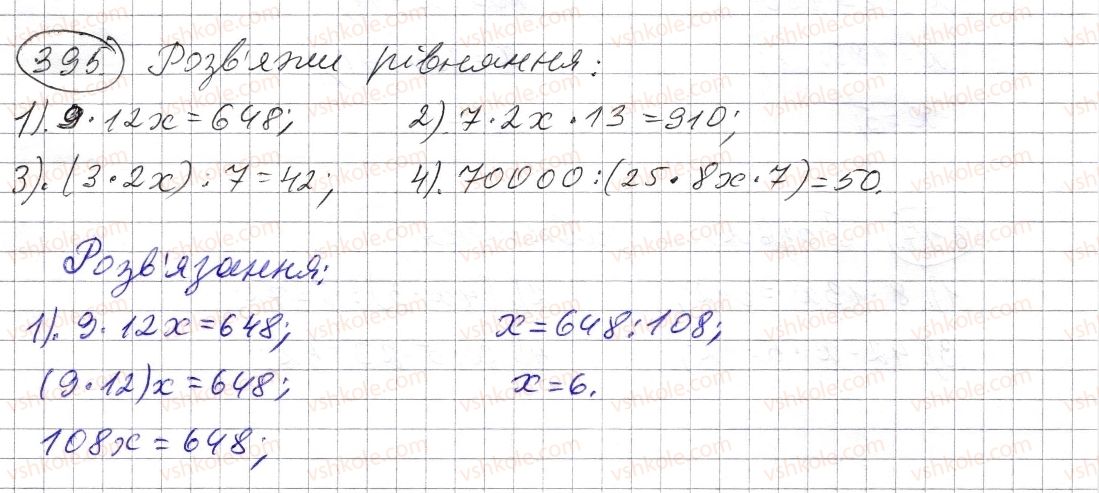 395. Розв'яжи рівняння:
1). 9·12x=648; 2). 7·2x·13=910;
3). (3·2x):7=42; 4). 70000:(25·8x·7)=50.
Розв'язання:
1). 9·12x=648; x=648:108;
(9·12)x=648; x=6.
108x=648;
vshkole.com